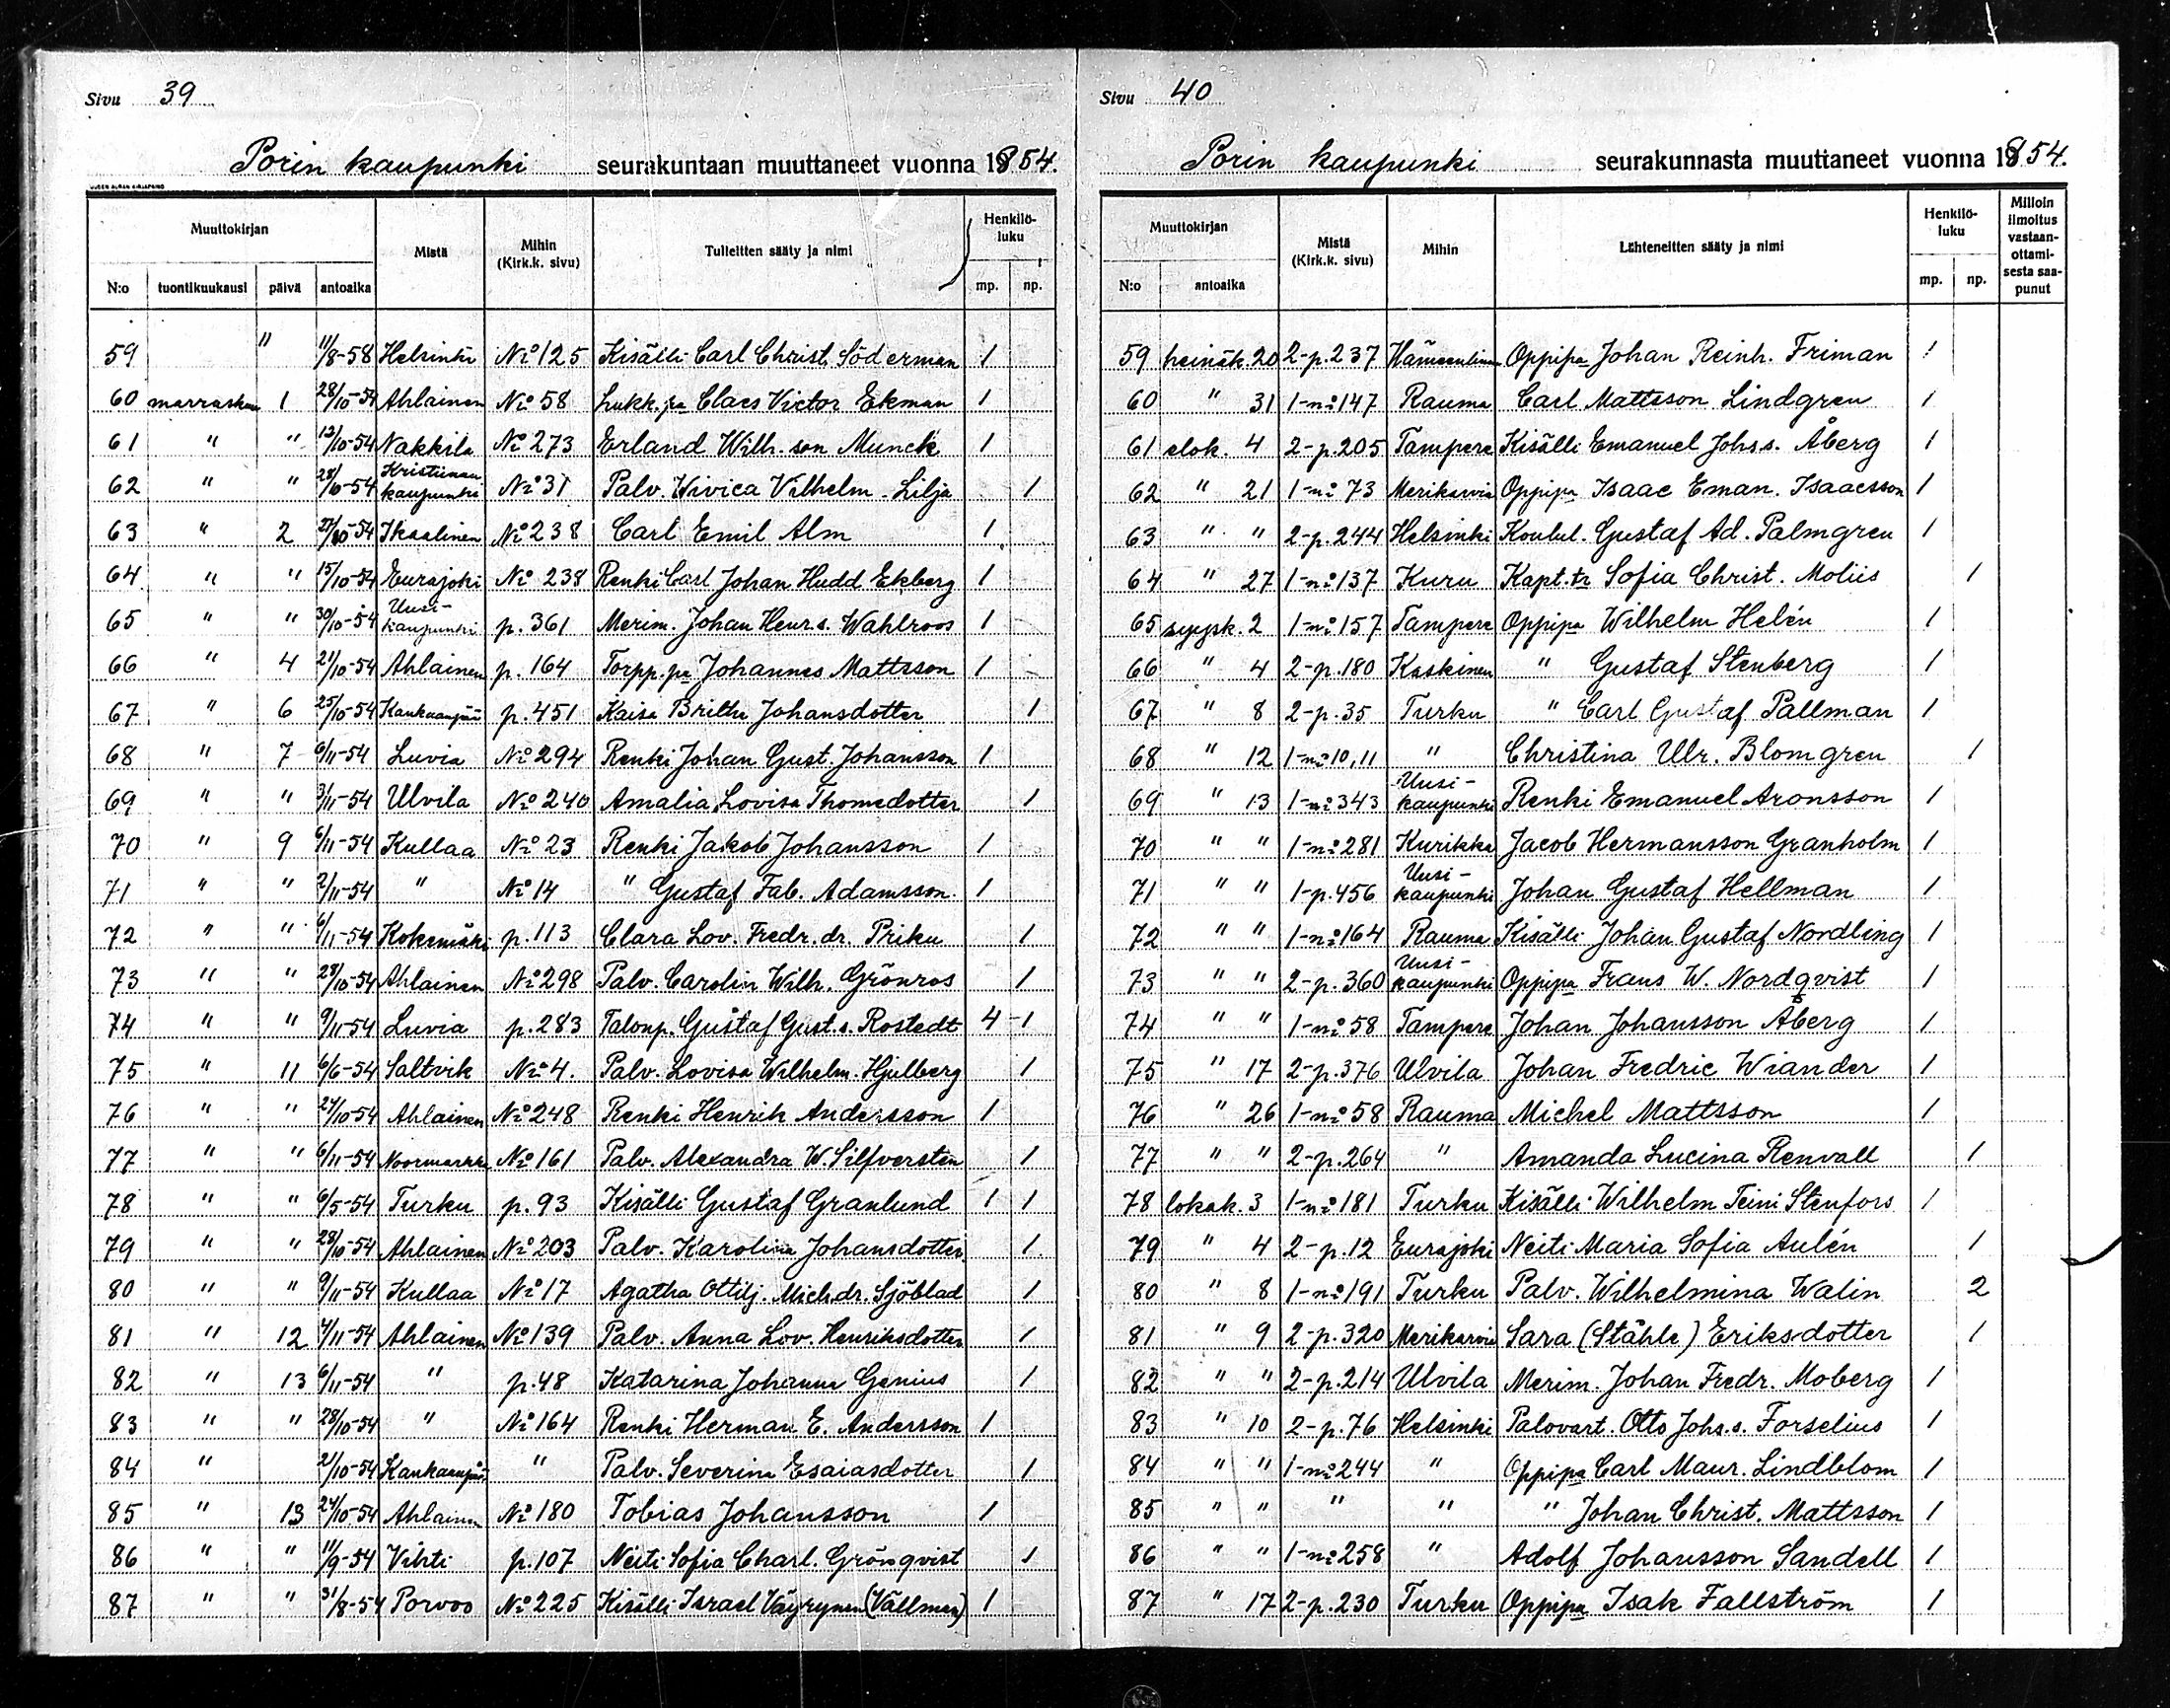 Sivu 39
Porin kaupunki seurakuntaan muuttaneet vuonna 1854.
UUDEN AURAN KIRJAPAINO
Muuttokirjan Mistä Mihin (Kirk.k. sivu) Tulleitten sääty ja nimi Henkilö-luku
N:o tuontikuukausi päivä antoaika mp. np.
59 " 11/8-58 Helsinki No 125 Kisälli Carl Christ. Söderman 1
60 marraskuu 1 28/10-54 Ahlainen No 58 Lukk. pa Claes Victor Ekman 1
61 " " 13/10-54 Nakkila No 273 Erland Wilh. son Munck 1
62 " " 28/10-54 Kristiinan kaupunki No 31 Palv. Wivica Vilhelm. Lilja 1
63 " 2 27/10-54 Ikaalinen No 238 Carl Emil Alm 1
64 " " 15/10-54 Eurajoki No 238 Renki Carl Johan Hudd Ekberg 1
65 " " 30/10-54 Uusi-kaupunki p. 361 Merim. Johan Henr.s. Wahlroos 1
66 " 4 21/10-54 Ahlainen p. 164 Torpp. pa Johannes Mattsson 1
67 " 6 25/10-54 Kankaanpää p. 451 Kaisa Britha Johansdotter 1
68 " 7 6/11-54 Luvia No 294 Renki Johan Gust. Johansson 1
69 " " 3/11-54 Ulvila No 240 Amalia Lovisa Thomedotter 1
70 " 9 6/11-54 Kullaa No 23 Renki Jakob Johansson 1
71 " " 2/11-54 " No 14 " Gustaf Fab. Adamsson 1
72 " " 6/11-54 Kokemäki p. 113 Clara Lov. Fredr. dr. Priku 1
73 " " 28/10-54 Ahlainen No 298 Palv. Carolin Wilh. Grönros 1
74 " " 9/11-54 Luvia p. 283 Talonp. Gustaf Gust.s. Rostedt 4 1
75 " 11 6/6-54 Saltvik No 4. Palv. Lovisa Wilhelm. Hjulberg 1
76 " " 24/10-54 Ahlainen No 248 Renki Henrik Andersson 1
77 " " 6/11-54 Noormarkku No 161 Palv. Alexandra W. Silfversten 1
78 " " 6/5-54 Turku p. 93 Kisälli Gustaf Granlund 1 1
79 " " 28/10-54 Ahlainen No 203 Palv. Karolina Johansdotter 1
80 " " 9/11-54 Kullaa No 17 Agatha Ottilj. Mich.dr. Sjöblad 1
81 " 12 4/11-54 Ahlainen No 139 Palv. Anna Lov. Henriksdotter 1
82 " 13 6/11-54 " p. 48 Katarina Johanna Genius 1
83 " " 28/10-54 " No 164 Renki Herman E. Andersson 1
84 " 21/10-54 Kankaanpää " Palv. Severina Esaiasdotter 1
85 " 13 24/10-54 Ahlainen No 180 Tobias Johansson 1
86 " " 11/9-54 Vihti p. 107 Neiti Sofia Charl. Grönqvist 1
87 " " 31/8-54 Porvoo No 225 Kisälli Israel Väyrynen (Vällman) 1
Sivu 40
Porin kaupunki seurakunnasta muuttaneet vuonna 1854.
Muuttokirjan Mistä (Kirk.k. sivu) Mihin Lähteneitten sääty ja nimi Henkilö-luku Milloin ilmoitus vastaan-ottami-sesta saa-punut
N:o antoaika mp. np.
59 heinäk. 20 2-p. 237 Hämeenlinna Oppipa Johan Reinh. Friman 1
60 " 31 1-no 147 Rauma Carl Mattsson Lindgren 1
61 elok. 4 2-p. 205 Tampere Kisälli Emanuel Johs.s. Åberg 1
62 " 21 1-no 73 Merikarvia Oppipa Isaac Eman. Isaacsson 1
63 " " 2-p. 244 Helsinki Koulul. Gustaf Ad. Palmgren 1
64 " 27 1-no 137 Kuru Kapt. tr Sofia Christ. Moliis 1
65 syysk. 2 1-no 157 Tampere Oppipa Wilhelm Helén 1
66 " 4 2-p. 180 Kaskinen " Gustaf Stenberg 1
67 " 8 2-p. 35 Turku " Carl Gustaf Pallman 1
68 " 12 1-no 10, 11 " Christina Ulr. Blomgren 1
69 " 13 1-no 343 Uusi-kaupunki Renki Emanuel Aronsson 1
70 " " 1-no 281 Kurikka Jacob Hermansson Granholm 1
71 " " 1-p. 456 Uusi-kaupunki Johan Gustaf Hellman 1
72 " " 1-no 164 Rauma Kisälli Johan Gustaf Nordling 1
73 " " 2-p. 360 Uusi-kaupunki Oppipa Frans W. Nordqvist 1
74 " " 1-no 58 Tampere Johan Johansson Åberg 1
75 " 17 2-p. 376 Ulvila Johan Fredric Wiander 1
76 " 26 1-no 58 Rauma Michel Mattsson 1
77 " " 2-p. 264 " Amanda Lucina Renvall 1
78 lokak. 3 1-no 181 Turku Kisälli Wilhelm Teini Stenfors 1
79 " 4 2-p. 12 Eurajoki Neiti Maria Sofia Aulén 1
80 " 8 1-no 191 Turku Palv. Wilhelmina Walin 2
81 " 9 2-p. 320 Merikarvia Sara (Ståhle) Eriksdotter 1
82 " " 2-p. 214 Ulvila Merim. Johan Fredr. Moberg 1
83 " 10 2-p. 76 Helsinki Palovart. Otto Johs.s. Forselius 1
84 " " 1-no 244 " Oppipa Carl Maur. Lindblom 1
85 " " " " " Johan Christ. Mattsson 1
86 " " 1-no 258 " Adolf Johansson Sandell 1
87 " 17 2-p. 230 Turku Oppipa Isak Fallström 1